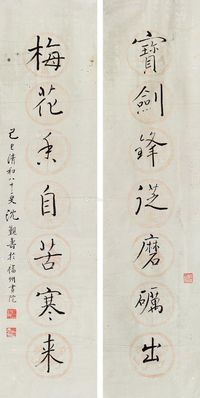 寶劍鋒從磨礪出
梅花香自苦寒来
己巳清和八十二叟沈觀壽於信州書院